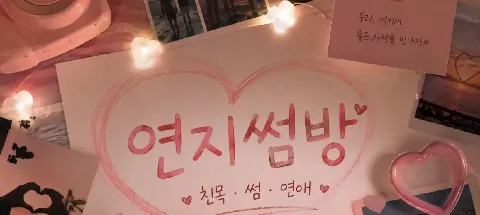 우리, 여기서
좋은 사람을 만나자
연지썸방
친목 · 썸 · 연애